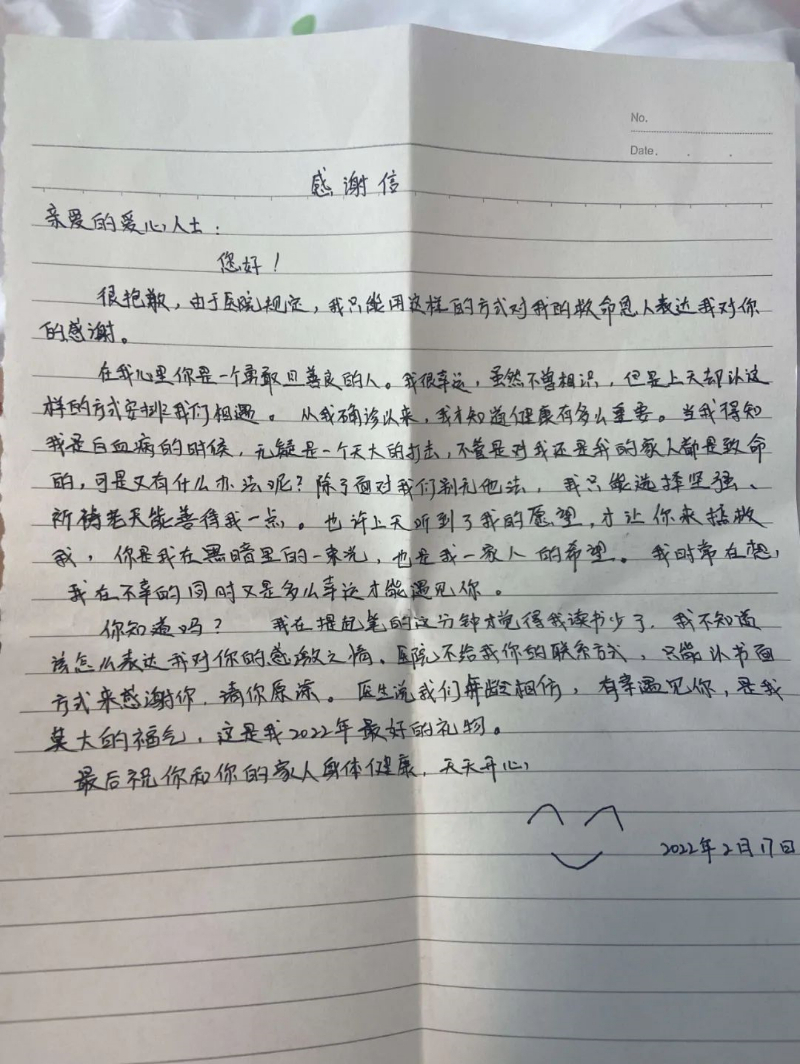 No.
Date. . . .
感谢信
亲爱的爱心人士：
您好！
很抱歉，由于医院规定，我只能用这样的方式对我的救命恩人表达我对你
的感谢。
在我心里你是一个勇敢且善良的人。我很幸运，虽然不曾相识，但是上天却以这
样的方式安排我们相遇。从我确诊以来，我才知道健康有多么重要。当我得知
我是白血病的时候，无疑是一个天大的打击，不管是对我还是我的家人都是致命
的，可是又有什么办法呢？除了面对我们别无他法，我只能选择坚强、
祈祷老天能善待我一点。也许上天听到了我的愿望，才让你来拯救
我，你是我在黑暗里的一束光，也是我一家人的希望。我时常在想，
我在不幸的同时又是多么幸运才能遇见你。
你知道吗？ 我在提起笔的这分钟才觉得我读书少了，我不知道
该怎么表达我对你的感激之情。医院不给我你的联系方式，只能以书面
方式来感谢你，请你原谅。医生说我们年龄相仿，有幸遇见你，是我
莫大的福气，这是我2022年最好的礼物。
最后祝你和你的家人身体健康，天天开心
2022年2月17日